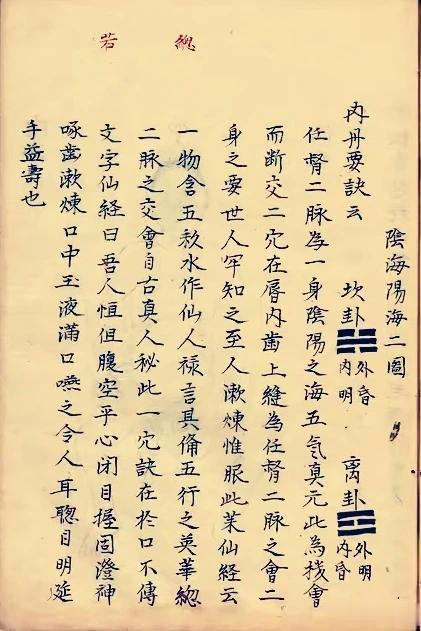 總若
陰海陽海二圖
內丹要訣云 坎卦 外昏內明 离卦 外明內昏
任督二脉為一身陰陽之海五氣真元此為機會
而断交二穴在唇內齒上縫為任督二脉之會二
身之要世人罕知之至人漱煉惟服此茱仙経云
一物含五彩水作仙人祿言具備五行之英華總
二脉之交會自古真人秘此一穴訣在於口不傳
文字仙経曰吾人恒但腹空平心闭目握固澄神
啄齒漱煉口中玉液滿口嚥之令人耳聰目明延
手益壽也